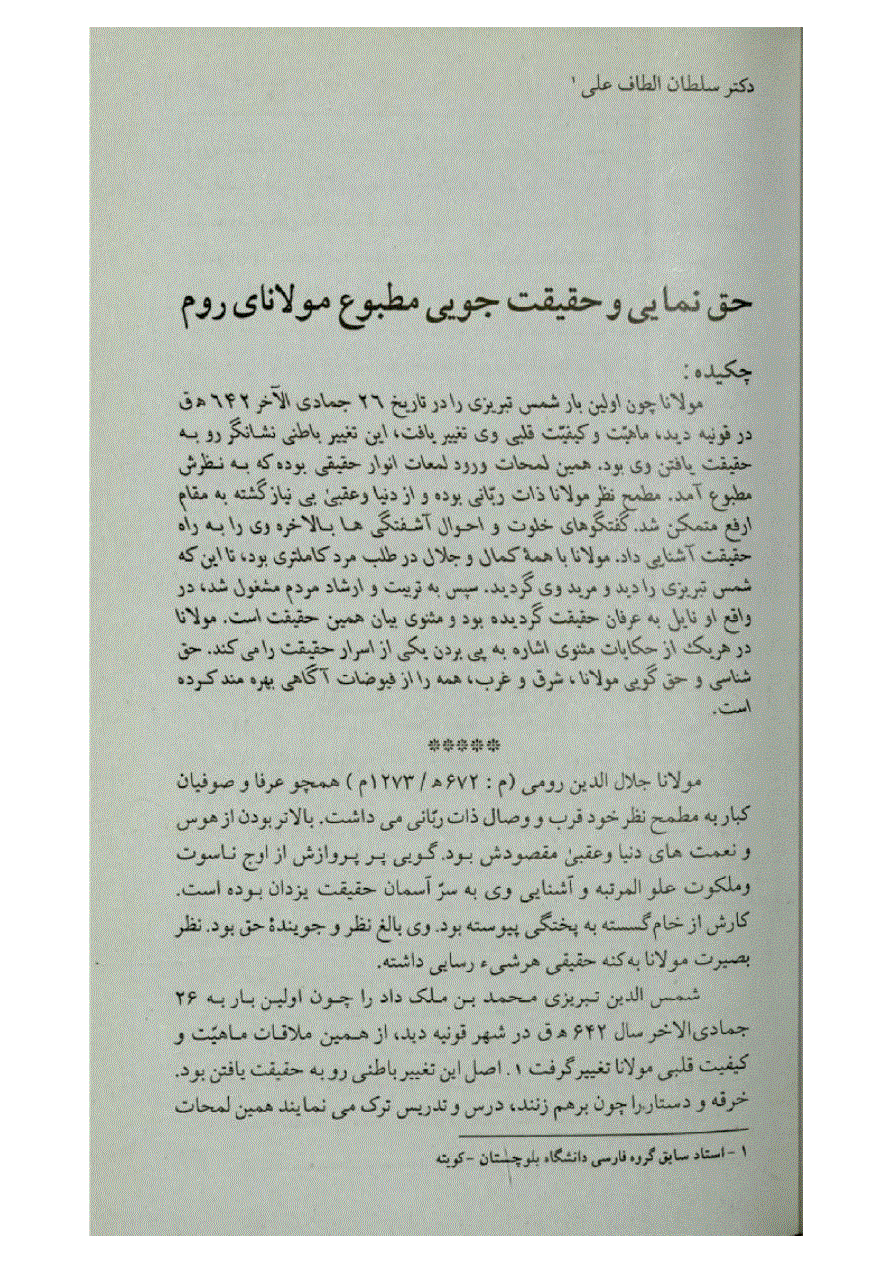 دکتر سلطان الطاف علی ۱
حق نمایی و حقیقت جویی مطبوع مولانای روم
چکیده :
مولانا چون اولین بار شمس تبریزی را در تاریخ ۲۶ جمادی الآخر ۶۴۲ ه ق
در قونیه دید، ماهیّت و کیفیّت قلبی وی تغییر یافت، این تغییر باطنی نشانگر رو بـه
حقیقت یافتن وی بود. همین لمحات ورود لمعات انوار حقیقی بوده که بـه نـظرش
مطبوع آمد. مطمح نظر مولانا ذات ربّانی بوده و از دنیا وعقبیٰ بی نیاز گشته به مقام
ارفع متمکن شد. گفتگوهای خلوت و احـوال آشـفتگی هـا بـالاخره وی را بـه راه
حقیقت آشنایی داد. مولانا با همۀ کمال و جلال در طلب مرد کاملتری بود، تا این که
شمس تبریزی را دید و مرید وی گردید. سپس به تربیت و ارشاد مردم مشغول شد، در
واقع او نایل به عرفان حقیقت گردیده بود و مثنوی بیان همین حقیقت است. مولانا
در هریک از حکایات مثنوی اشاره به پی بردن یکی از اسرار حقیقت را می کند. حق
شناسی و حق گویی مولانا ، شرق و غرب، همه را از فیوضات آگاهی بهره مند کـرده
است.
*****
مولانا جلال الدین رومی (م : ۶۷۲ه‍ / ۱۲۷۳م ) همچو عرفا و صوفیان
کبار به مطمح نظر خود قرب و وصال ذات ربّانی می داشت. بالاتر بودن از هوس
و نعمت های دنیا وعقبیٰ مقصودش بـود. گـویی پـر پـروازش از اوج نـاسوت
وملکوت علو المرتبه و آشنایی وی به سرّ آسمان حقیقت یزدان بـوده است.
کارش از خام گسسته به پختگی پیوسته بود. وی بالغ نظر و جویندۀ حق بود. نظر
بصیرت مولانا به کنه حقیقی هرشیء رسایی داشته.
شمس الدین تـبریزی مـحمد بـن مـلک داد را چـون اولیـن بـار بـه ۲۶
جمادی‌الاخر سال ۶۴۲ ه ق در شهر قونیه دید، از هـمین ملاقـات مـاهیّت و
کیفیت قلبی مولانا تغییر گرفت ۱. اصل این تغییر باطنی رو به حقیقت یافتن بود.
خرقه و دستار را چون برهم زنند، درس و تدریس ترک می نمایند همین لمحات
۱ - استاد سابق گروه فارسی دانشگاه بلوچستان -کویته